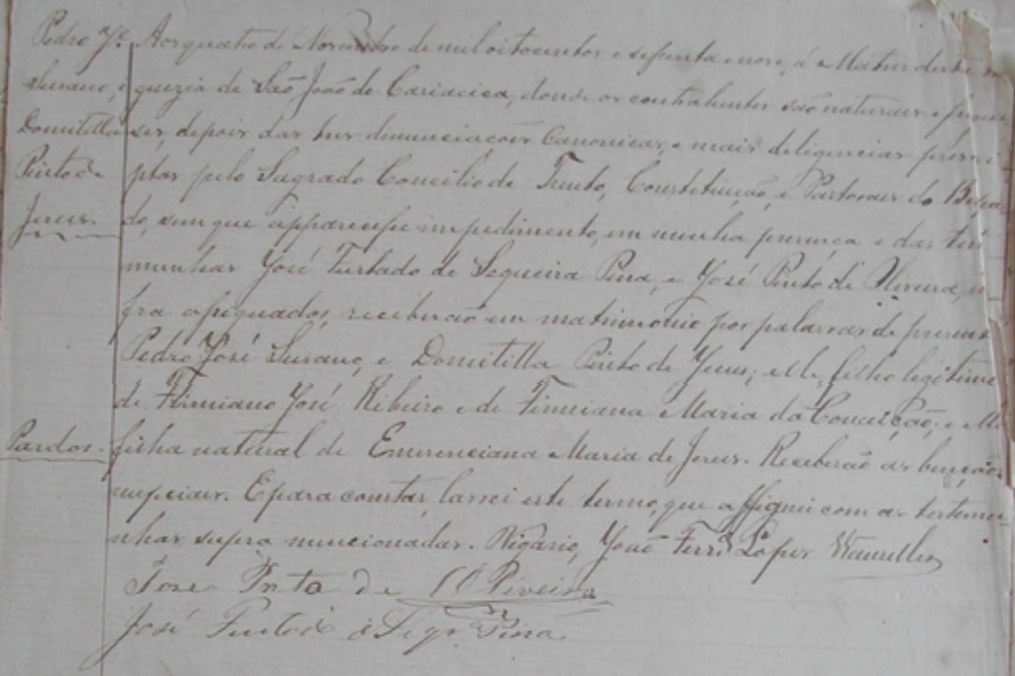 Pedro Je. Aos quatro de Novembro de mil oitocentos e setenta e nove, á Matriz desta
Surano, e guezia de São João de Cariacica, donde os contrahentes são naturaes e
Domitilla ses, depois das tres denunciacões Canonicas, e mais deligencias prescri
Pinto de ptas pelo Sagrado Concilio de Trento, Constituição, e Pastoraes do Bispa
Jesus. do, sem que apparecesse impedimento, em minha presença e das tes
munhas José Furtado de Sequeira Pina, e José Pinto de Oliveira,
fra assignados, receberão em matrimonio por palavras de
Pedro José Surano, e Domitilla Pinto de Jesus; elle, filho legitimo
de Firmiano José Ribeiro e de Firmiana Maria da Conceição; e
Pardos. filha natural de Emerenciana Maria de Jesus. Receberão as bençãos
nupciaes. E para constar, lavrei este termo, que assignei com as testemu
nhas supra mencionadas. Vigario, João Ferra. Lopes Wanzeller
Jose Pinto de Oliveira
José Furtado de Seqra. Pina